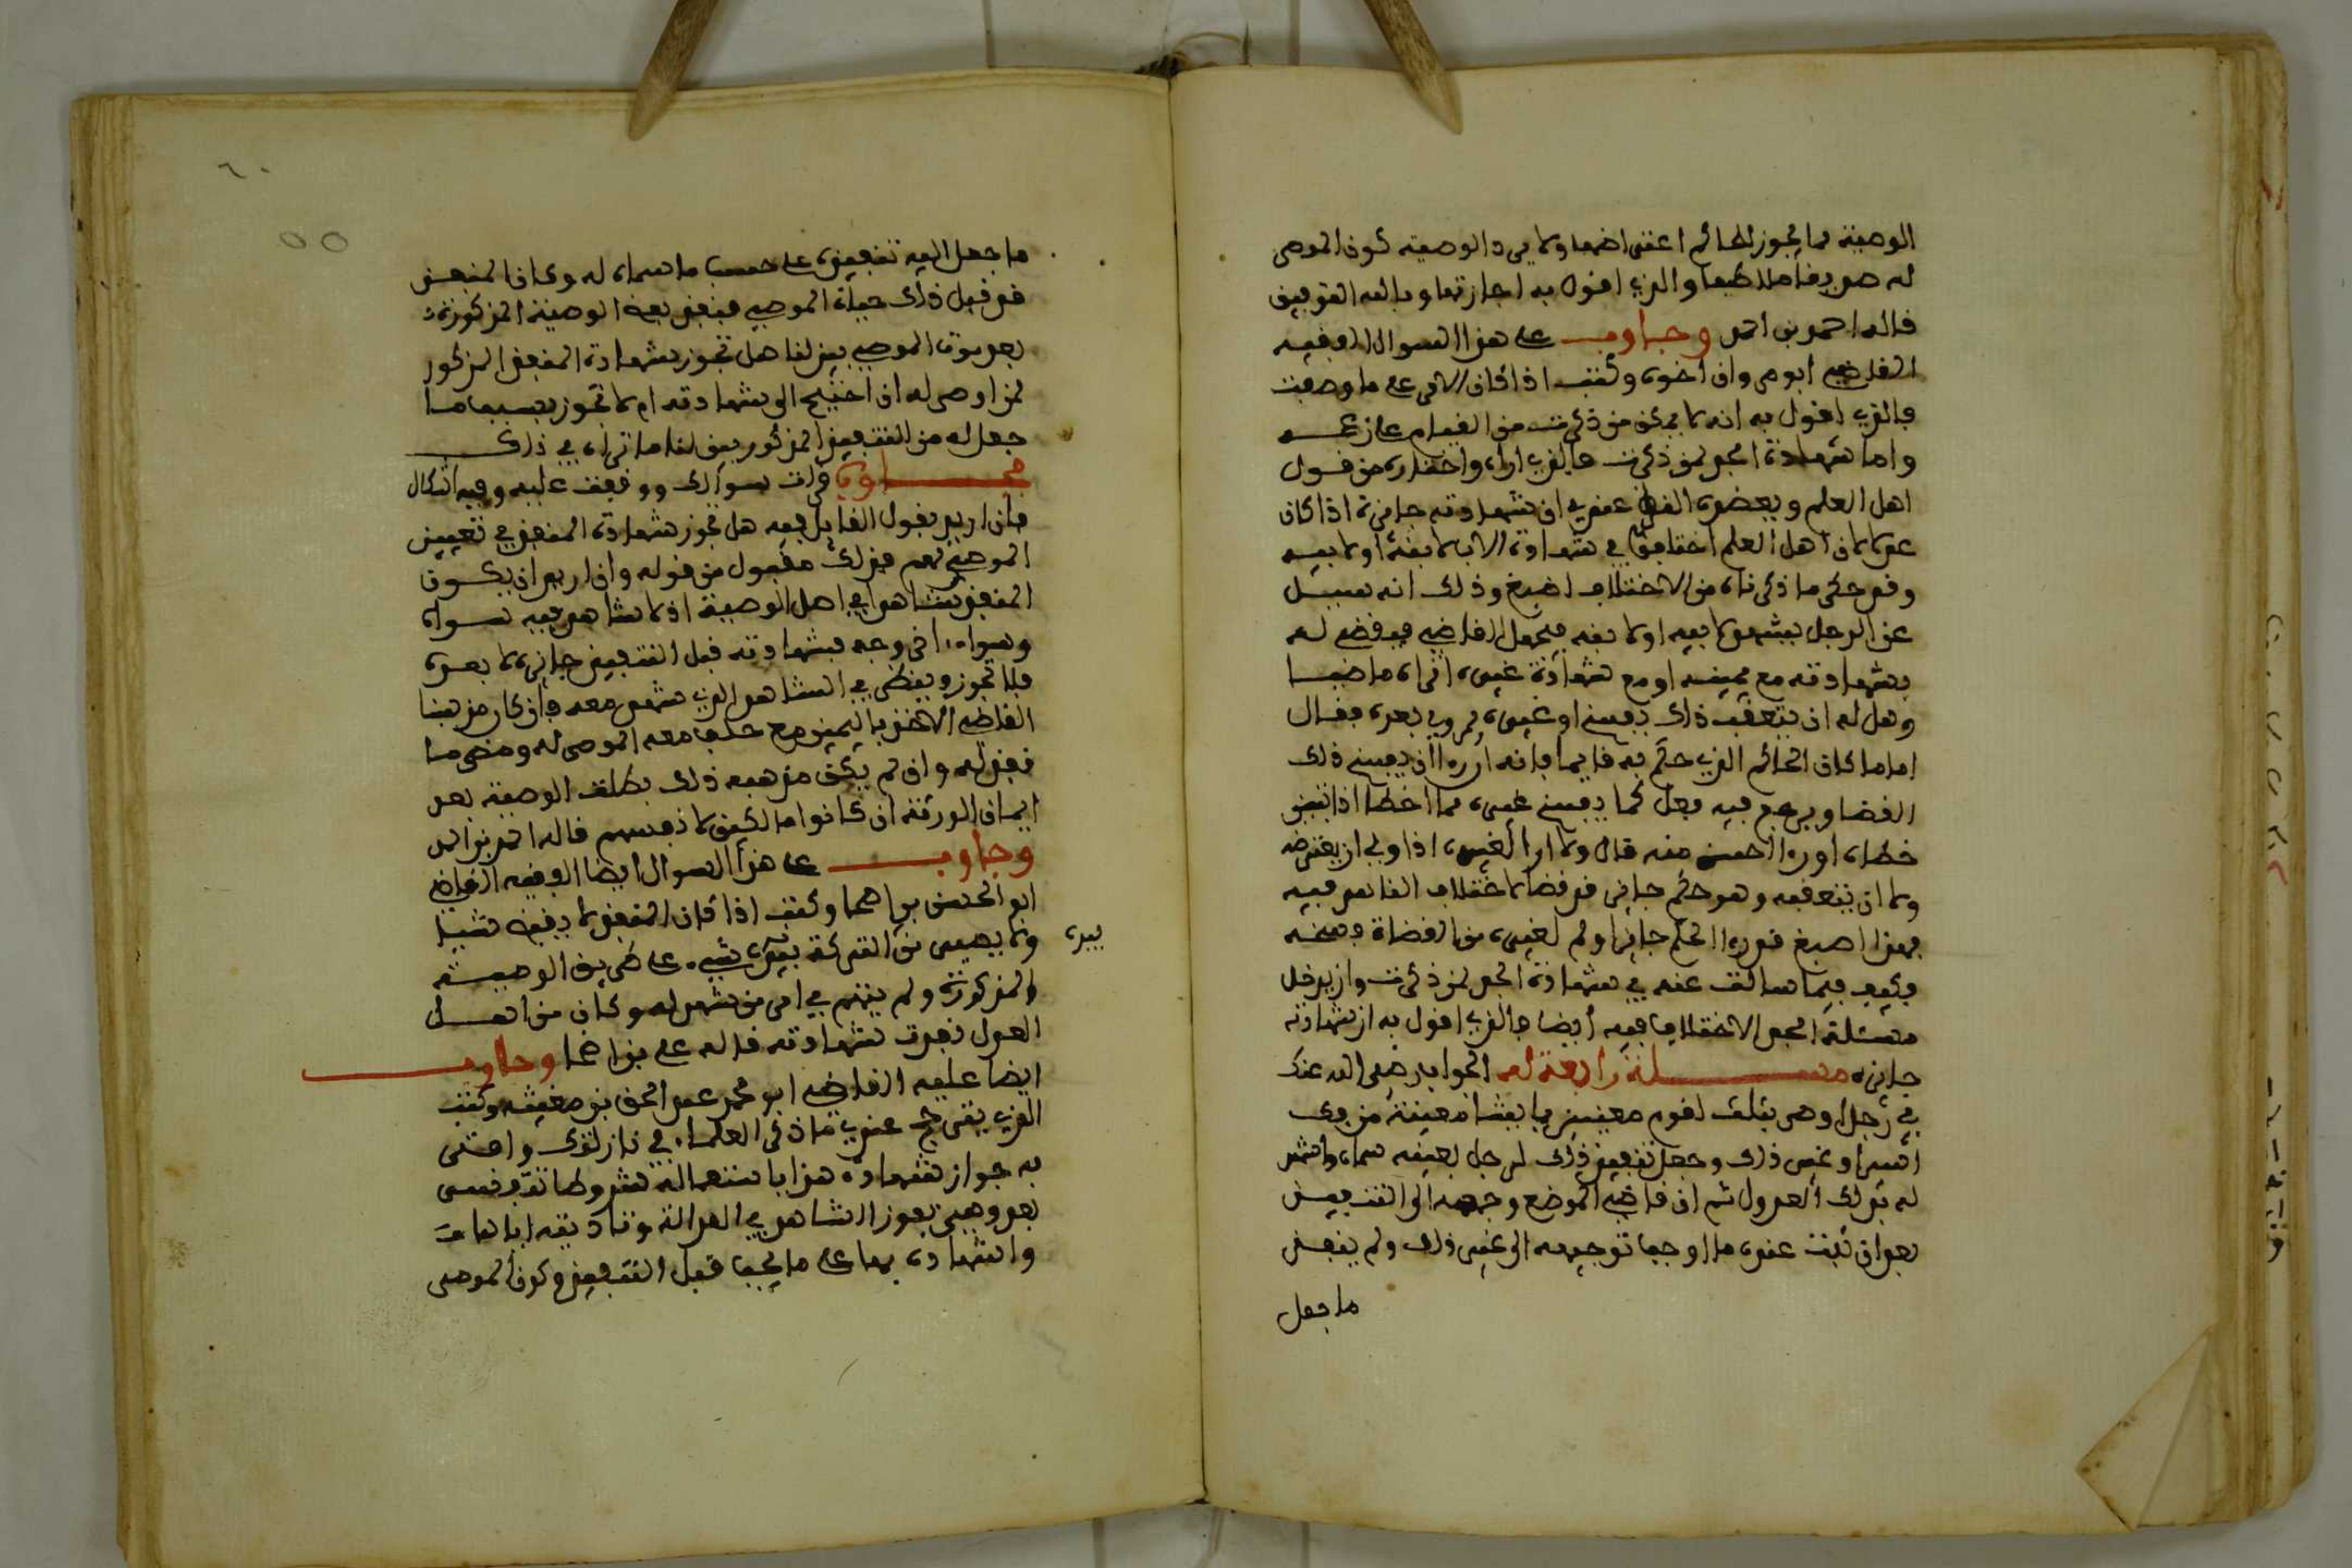 الوصية مما يجوز للحاكم اعني اضها ولا يرد الوصية كون الموصى
له صديقا ملاطفا والذي اقول به اجازتها وبالله التوفيق
قاله احمد بن احمد وجاوب على هذا السوال الفقيه
القاضي ابو موسى وان اخوه وكتب اذا كان الامر على ما وصفت
فالذي اقول به انه لا يمكن من ذكرت من القيام على زعمه
واما شهادة الجد لمن ذكرت فالذي اراه واختاره من قول
اهل العلم ويعضده النظر عندي ان شهادته جائزة اذا كان
عدلا لان اهل العلم اختلفوا في شهادة الاب لابنه او لابيه
وقد حكى ما ذكرناه من الاختلاف اصبغ وذلك انه سيل
عن الرجل يشهد لابيه او لابنه فيجعل القاضي فيقضي له
بشهادته مع يمينه او مع شهادة غيره اتراه ماضيا
وهل له ان يتعقب ذلك بفسخ او غيره ممن ولي بعده فقال
اما ما كان الحاكم الذي حكم به قايما فانه اراه ان يفسخ ذلك
القضا ويرجع فيه فعل كما يفسخ غيره مما اخطا اذا تبين
خطاه او راى احسن منه قال ولا ارى لغيره اذا ولي ان يعترضه
ولا ان يتعقبه وهو حكم جائز قد قضا لاختلاف الناس فيه
فهذا اصبغ قد راى الحكم جائزا ولم لغيره من القضاة فسخه
فكيف فيما سالت عنه في شهادة الجد لمن ذكرت وان يدخل
مسئلة الجد الاختلاف فيه ايضا فالذي اقول به ان شهادته
جائزة مسئلة رابعة له الجواب رضي الله عنك
في رجل اوصى بثلث لقوم معينين باثياث معينة من وى
اشيا وغير ذلك وجعل تنفيذ ذلك لرجل بعينه سماه واشهد
له بذلك العدول ثم ان قاضي الموضع وجهه الى التنفيذ
بعد ان ثبت عنده ما اوجب توجيهه الى غير ذلك ولم ينفذ
ما جعل
٦٠
٥٥
ما جعل اليه تنفيذه على حسب ما سماه له وكان المنفذ
قد قبل ذلك حياة الموصي فينفذ بعد الوصية المذكورة
بعد موت الموصي بين لنا هل تجوز شهادة المنفذ المذكور
لمن اوصى له ان احتيج الى شهادته ام لا تجوز بسبب ما
جعل له من التنفيذ المذكور بين لنا ما تراه في ذلك
فجاوب قرات سوالك ووقفت عليه وفيه اشكال
فان اريد بقول القايل فيه هل تجوز شهادة المنفذ في تعيين
الموصى لهم فذلك مقبول من قوله وان اريد ان يكون
المنفذ شاهدا في اصل الوصية اذ لا شاهد فيه سواه
وسواه اخر وجه فشهادته قبل التنفيذ جائزة لا بعده
فلا تجوز وينظر في الشاهد الذي شهد معه فان كان مذهب
القاضي الاخذ باليمين مع حلف معه الموصى له ومضى ما
نفذ لهم وان لم يكن مذهبه ذلك بطلت الوصية بعد
ايمان الورثة ان كانوا مالكين لانفسهم قاله احمد بن احمد
وجاوب على هذا السوال ايضا الفقيه القاضي
ابو الحسن بن اضحا وكتب اذا كان المنفذ لا يقبض شيا
ولا يصير من التركة بيده شيء على طريق الوصية
المذكورة ولم يتهم في امر من شهد له وكان من اهل
العدل نفذت شهادته قاله علي بن اضحا وجاوب
ايضا عليه القاضي ابو محمد عبد الحق بن مغيث وكتب
الذي يترجح عندي ما ذكر العلماء في نازلتك وافتى
به جواز شهادة هذا باستعماله شروطا تقدمت
بعد وهي بعوز الشاهد في العدالة وتاديته اياها
والشهادة بها على ما يجب قبل التنفيذ وكون الموصى
بيده